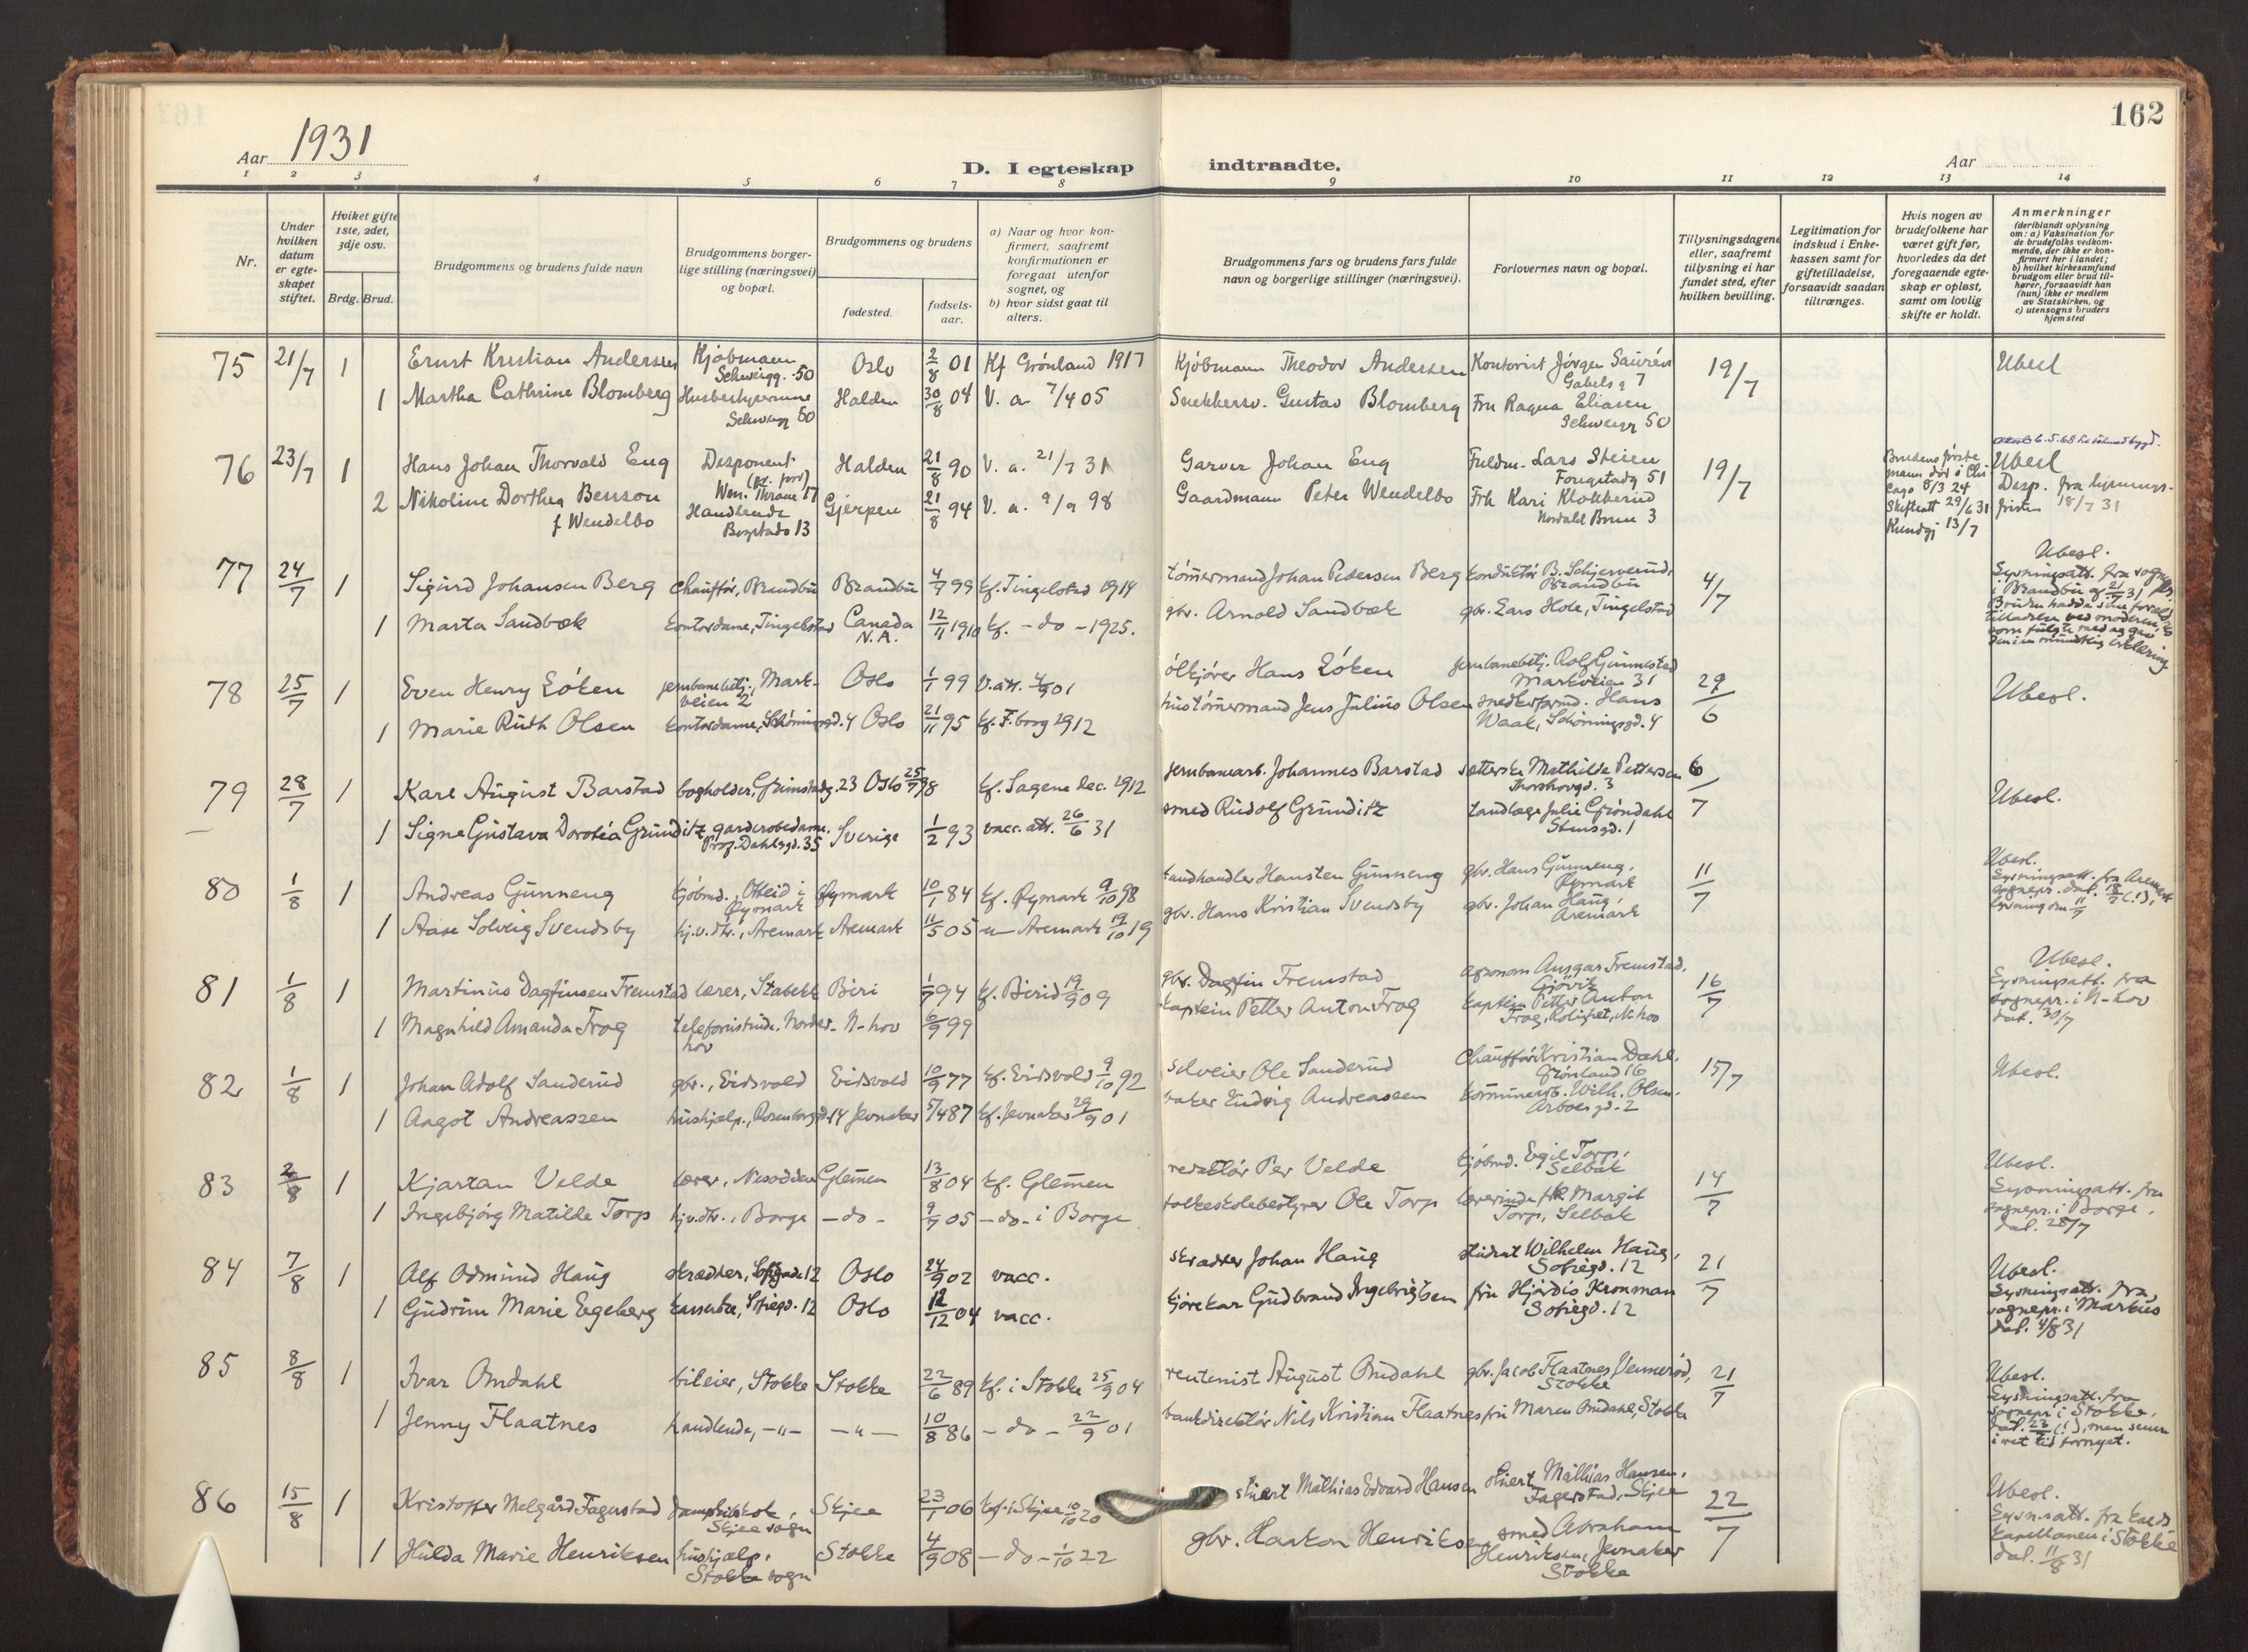 162
Aar 1931
D. I egteskap indtraadte.
Aar
1 2 3 4 5 6 7 8 9 10 11 12 13 14
Nr.
Under hvilken datum er egteskapet stiftet.
Hvilket gifte 1ste, 2det, 3dje osv.
Brdg. Brud.
Brudgommens og brudens fulde navn
Brudgommens borgerlige stilling (næringsvei) og bopæl.
Brudgommens og brudens
fødested.
fødselsaar.
a) Naar og hvor konfirmert, saafremt konfirmationen er foregaat utenfor sognet, og
b) hvor sidst gaat til alters.
Brudgommens fars og brudens fars fulde navn og borgerlige stillinger (næringsvei).
Forlovernes navn og bopæl.
Tillysningsdagene eller, saafremt tillysning ei har fundet sted, efter hvilken bevilling.
Legitimation for indskud i Enkekassen samt for giftetilladelse, forsaavidt saadan tiltrænges.
Hvis nogen av brudefolkene har været gift før, hvorledes da det foregaaende egteskap er opløst, samt om lovlig skifte er holdt.
Anmerkninger (deriblandt oplysning om: a) Vaksination for de brudefolks vedkommende, der ikke er konfirmert her i landet; b) hvilket kirkesamfund brudgom eller brud tilhører, forsaavidt han (hun) ikke er medlem av Statskirken, og c) utensogns bruders hjemsted
75 21/7 1 Ernst Kristian Andersen Kjøbmann Schweigg. 50 Oslo 2/8 01 Kf Grønland 1917 Kjøbmann Theodor Andersen Kontorist Jørgen Saurén Gabels g 7 19/7 Ubesl
1 Martha Cathrine Blomberg Husbestyrerinne Schweigg 50 Halden 30/8 04 V. a. 7/4 05 Snekkersv. Gustav Blomberg Fru Ragna Eliasen Schweigg 50
76 23/7 1 Hans Johan Thorvald Eng Disponent Halden 21/8 90 V. a. 21/7 31 Garver Johan Eng Fuldm. Lars Steien Fougstadg 51 19/7 Brudens første mann død i Chicago 8/3 24 Skifteatt 29/6 31 Kundgj 13/7 Ubesl Disp. fra lysningsfristen 18/7 31
2 Nikoline Dorthea Benson f Wendelbo Handlende Bogstadv 13 Gjerpen 21/8 94 V. a. 9/9 98 Gaardmann Peter Wendelbo Frk Kari Klokkerud Nordahl Brun 3
77 24/7 1 Sigurd Johansen Berg chauffør, Brandbu Brandbu 4/7 99 kf. Tingelstad 1914 tømmermand Johan Pedersen Berg konduktør B. Schjerverud, Brandbu 4/7 Ubesl.
1 Marta Sandbæk kontordame, Tingelstad Canada N.A. 12/11 1910 kf. - do - 1925. gbr. Arnold Sandbæk gbr. Lars Hole, Tingelstad
78 25/7 1 Even Henry Løken jernbanebetj., Markveien 2 Oslo 1/1 99 V.att. 4/9 01 ølkjører Hans Løken jernbanebetj. Rolf Gunnestad Markveien 31 29/6 Ubesl.
1 Marie Ruth Olsen kontordame, Schønningsgd. 4 Oslo 21/11 95 kf. F.borg 1912 hustømmermand Jens Julius Olsen snedkerformd. Hans Waak, Schønningsgd. 4
79 28/7 1 Karl August Barstad bogholder, Grimstadg. 23 Oslo 25/7 98 kf. Sagene dec. 1912 jernbanearb. Johannes Barstad sætterske Mathilde Pettersen Thorshovgd. 3 6/7 Ubesl.
1 Signe Gustava Dorotéa Grunditz garderobedame. Prof. Dahlsgd. 35 Sverige 1/2 93 vacc. att. 26/6 31 smed Rudolf Grunditz tandlæge Julie Grøndahl Stensgd. 1
80 1/8 1 Andreas Gunneng kjøbmd., Otteid i Øymark Øymark 10/1 84 kf. Øymark 9/10 98 landhandler Hansten Gunneng gbr. Hans Gunneng, Øymark 11/7 Ubesl.
1 Aase Solveig Svendsby hj.v.dtr., Aremark Aremark 11/5 05 -"- Aremark 19/10 19 gbr. Hans Kristian Svendsby gbr. Johan Haug, Aremark
81 1/8 1 Martinus Dagfinsen Fremstad lærer, Stabekk Biri 1/7 94 kf. Birid 19/9 09 gbr. Dagfin Fremstad agronom Ansgar Fremstad, Gjøvik 16/7 Ubesl. Lysningsatt. fra sognepr. i N-hov dat. 30/7
1 Magnhild Amanda Frog telefonistinde. Nordrehov N-hov 6/9 99 kaptein Petter Anton Frog kaptein Petter Anton Frog, N-hov
82 1/8 1 Johan Adolf Sanderud gbr., Eidsvold Eidsvold 10/9 77 kf. Eidsvold 9/10 92 selveier Ole Sanderud chauffør Kristian Dahl, Grønland 16 15/7 Ubesl.
1 Aagot Andreassen hushjælp., Rosenborggd. 14 Jevnaker 5/4 87 kf. Jevnaker 29/9 01 baker Ludvig Andreassen kommunearb. Wilh. Olsen. Arboesgd. 2
83 2/8 1 Kjartan Velde lærer, Nesodden Glemmen 13/8 04 kf. Glemmen redaktør Per Velde kjøbmd. Egil Torp, Selbak 14/7 Ubesl. Lysningsatt. fra sognepr. i Borge, dat. 28/7
1 Ingebjørg Matilde Torp hj.v.dtr., Borge - do - 9/7 05 - do - i Borge folkeskolebestyrer Ole Torp lærerinde frk. Margit Torp, Selbak
84 7/8 1 Alf Odmund Haug skrædder, Sofiegade 12 Oslo 24/9 02 vacc. skrædder Johan Haug student Wilhelm Haug, Sofiegd. 12 21/7 Ubesl. Lysningsatt. fra sognepr. i Markus dat. 4/8 31
1 Gudrun Marie Engeberg Sofiegd. 12 Oslo 12/12 04 vacc. kjørekar Gudbrand Ingebrigtsen fru Hjørdis Kronman Sofiegd. 12
85 8/8 1 Ivar Omdahl bileier, Stokke Stokke 22/6 89 kf. i Stokke 25/9 04 rentenist August Omdahl gbr. Jacob Flaatnes, Vennerød, Stokke 21/7 Ubesl. Lysningsatt. fra sognepr. i Stokke, dat. 23/7 (!), men senere i ret tid fornyet.
1 Jenny Flaatnes handlende, -"- -"- 10/8 86 - do - 22/9 01 bankdirektør Nils Kristian Flaatnes fru Maren Omdahl, Stokke
86 15/8 1 Kristoffer Melgård Fagerstad Skjee sogn Skjee 23/1 06 kf. i Skjee 10/10 20 stuert Mathias Edvard Hansen stuert Mathias Hansen, Fagerstad, Skjee 22/7 Ubesl. Lysn.att. fra kapellanen i Stokke dat. 11/8 31
1 Hulda Marie Henriksen hushjælp, Stokke sogn Stokke 4/9 08 - do - 1/10 22 gbr. Haakon Henriksen smed Abraham Henriksen, Jevnaker Stokke